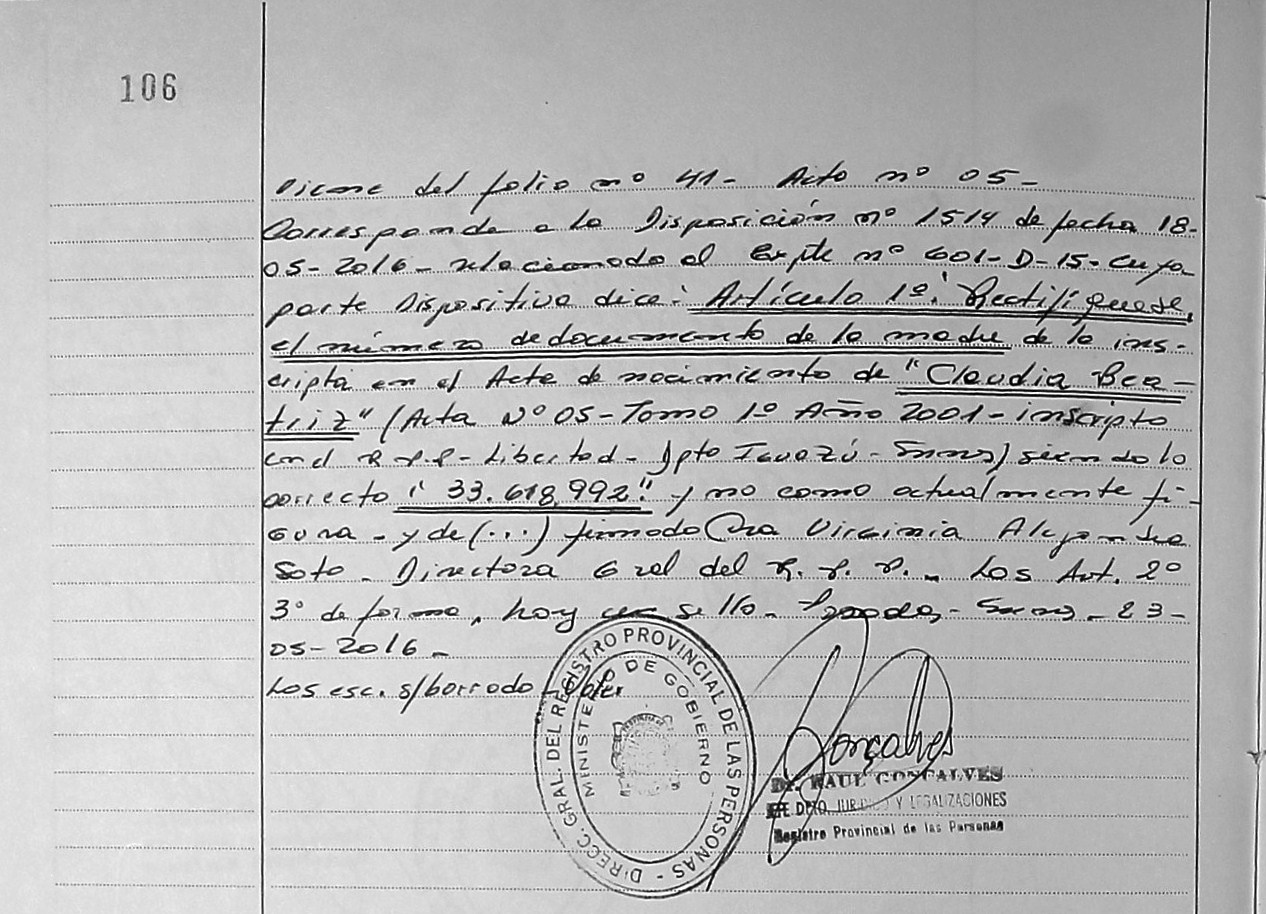 106
Viene del folio nº 41- Acta nº 05-
Corresponde a la Disposición nº 1514 de fecha 18-
05-2016- relacionado al Expte nº 601-D-15- cuya
parte Dispositiva dice: Artículo 1º: Rectifíquese,
el número de documento de la madre de la ins-
cripta en el Acta de nacimiento de "Claudia Bea-
triz" (Acta Nº 05-Tomo 1º Año 2001- inscripta
en el R.P.P- Libertad- Dpto Iguazú- ) siendo lo
correcto "33.618.992" y no como actualmente fi-
gura - y de (...) firmado Dra Virginia Alejandra
Soto - Directora Gral del R. P. P. - Los Art. 2º
3º de forma, hoy sello - Posadas, - 23-
05-2016 -
Los esc. s/borrado
DIRECC. GRAL. DEL REGISTRO PROVINCIAL DE LAS PERSONAS -
MINISTERIO DE GOBIERNO
Gonçalves
Dr. RAUL GONÇALVES
JEFE DPTO. JURIDICO Y LEGALIZACIONES
Registro Provincial de las Personas